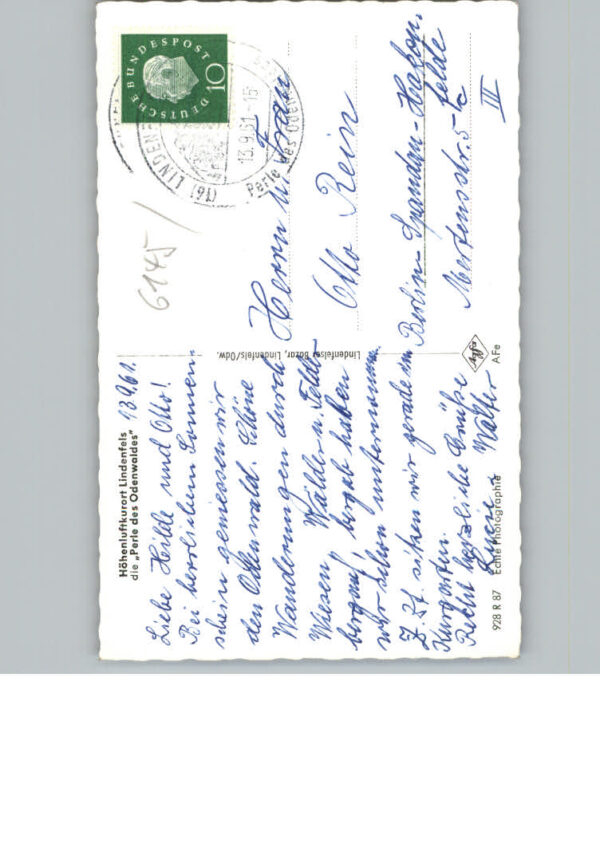 Höhenluftkurort Lindenfels
die „Perle des Odenwaldes"
13.9.61.
Liebe Hilde und Otto!
Bei herrlichem Sonnen-
schein geniessen wir
den Odenwald. Schöne
Wanderungen durch
Wiesen, Wälder u. Felder
bergauf, bergab haben
wir schon unternommen.
Z. Zt. sitzen wir gerade im
Kurgarten.
Recht herzliche Grüße
Walter
928 R 87 Echte Photographie
Lindenfelser Bazar, Lindenfels/Odw.
Agfa
AFe
6145/
DEUTSCHE BUNDESPOST
10
(16) LINDENF
13.9.61-15
Perle des Oden
Herrn u. Frau
Otto Rein
Berlin-Spandau-Hakon-
felde
Mertensstr. 5
III